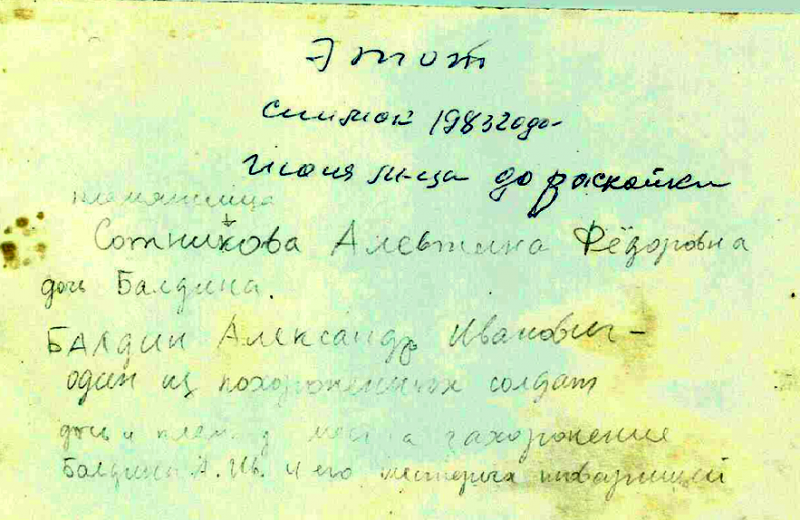 Этот
снимок 1983 года
июня м-ца до раскопки
племянница
Сотникова Алевтина Фёдоровна
дочь Балдина.
Балдин Александр Иванович —
один из похороненных солдат
дочь и плем-ца у места захоронение
Балдина А. Ив. и его шестерых товарищей